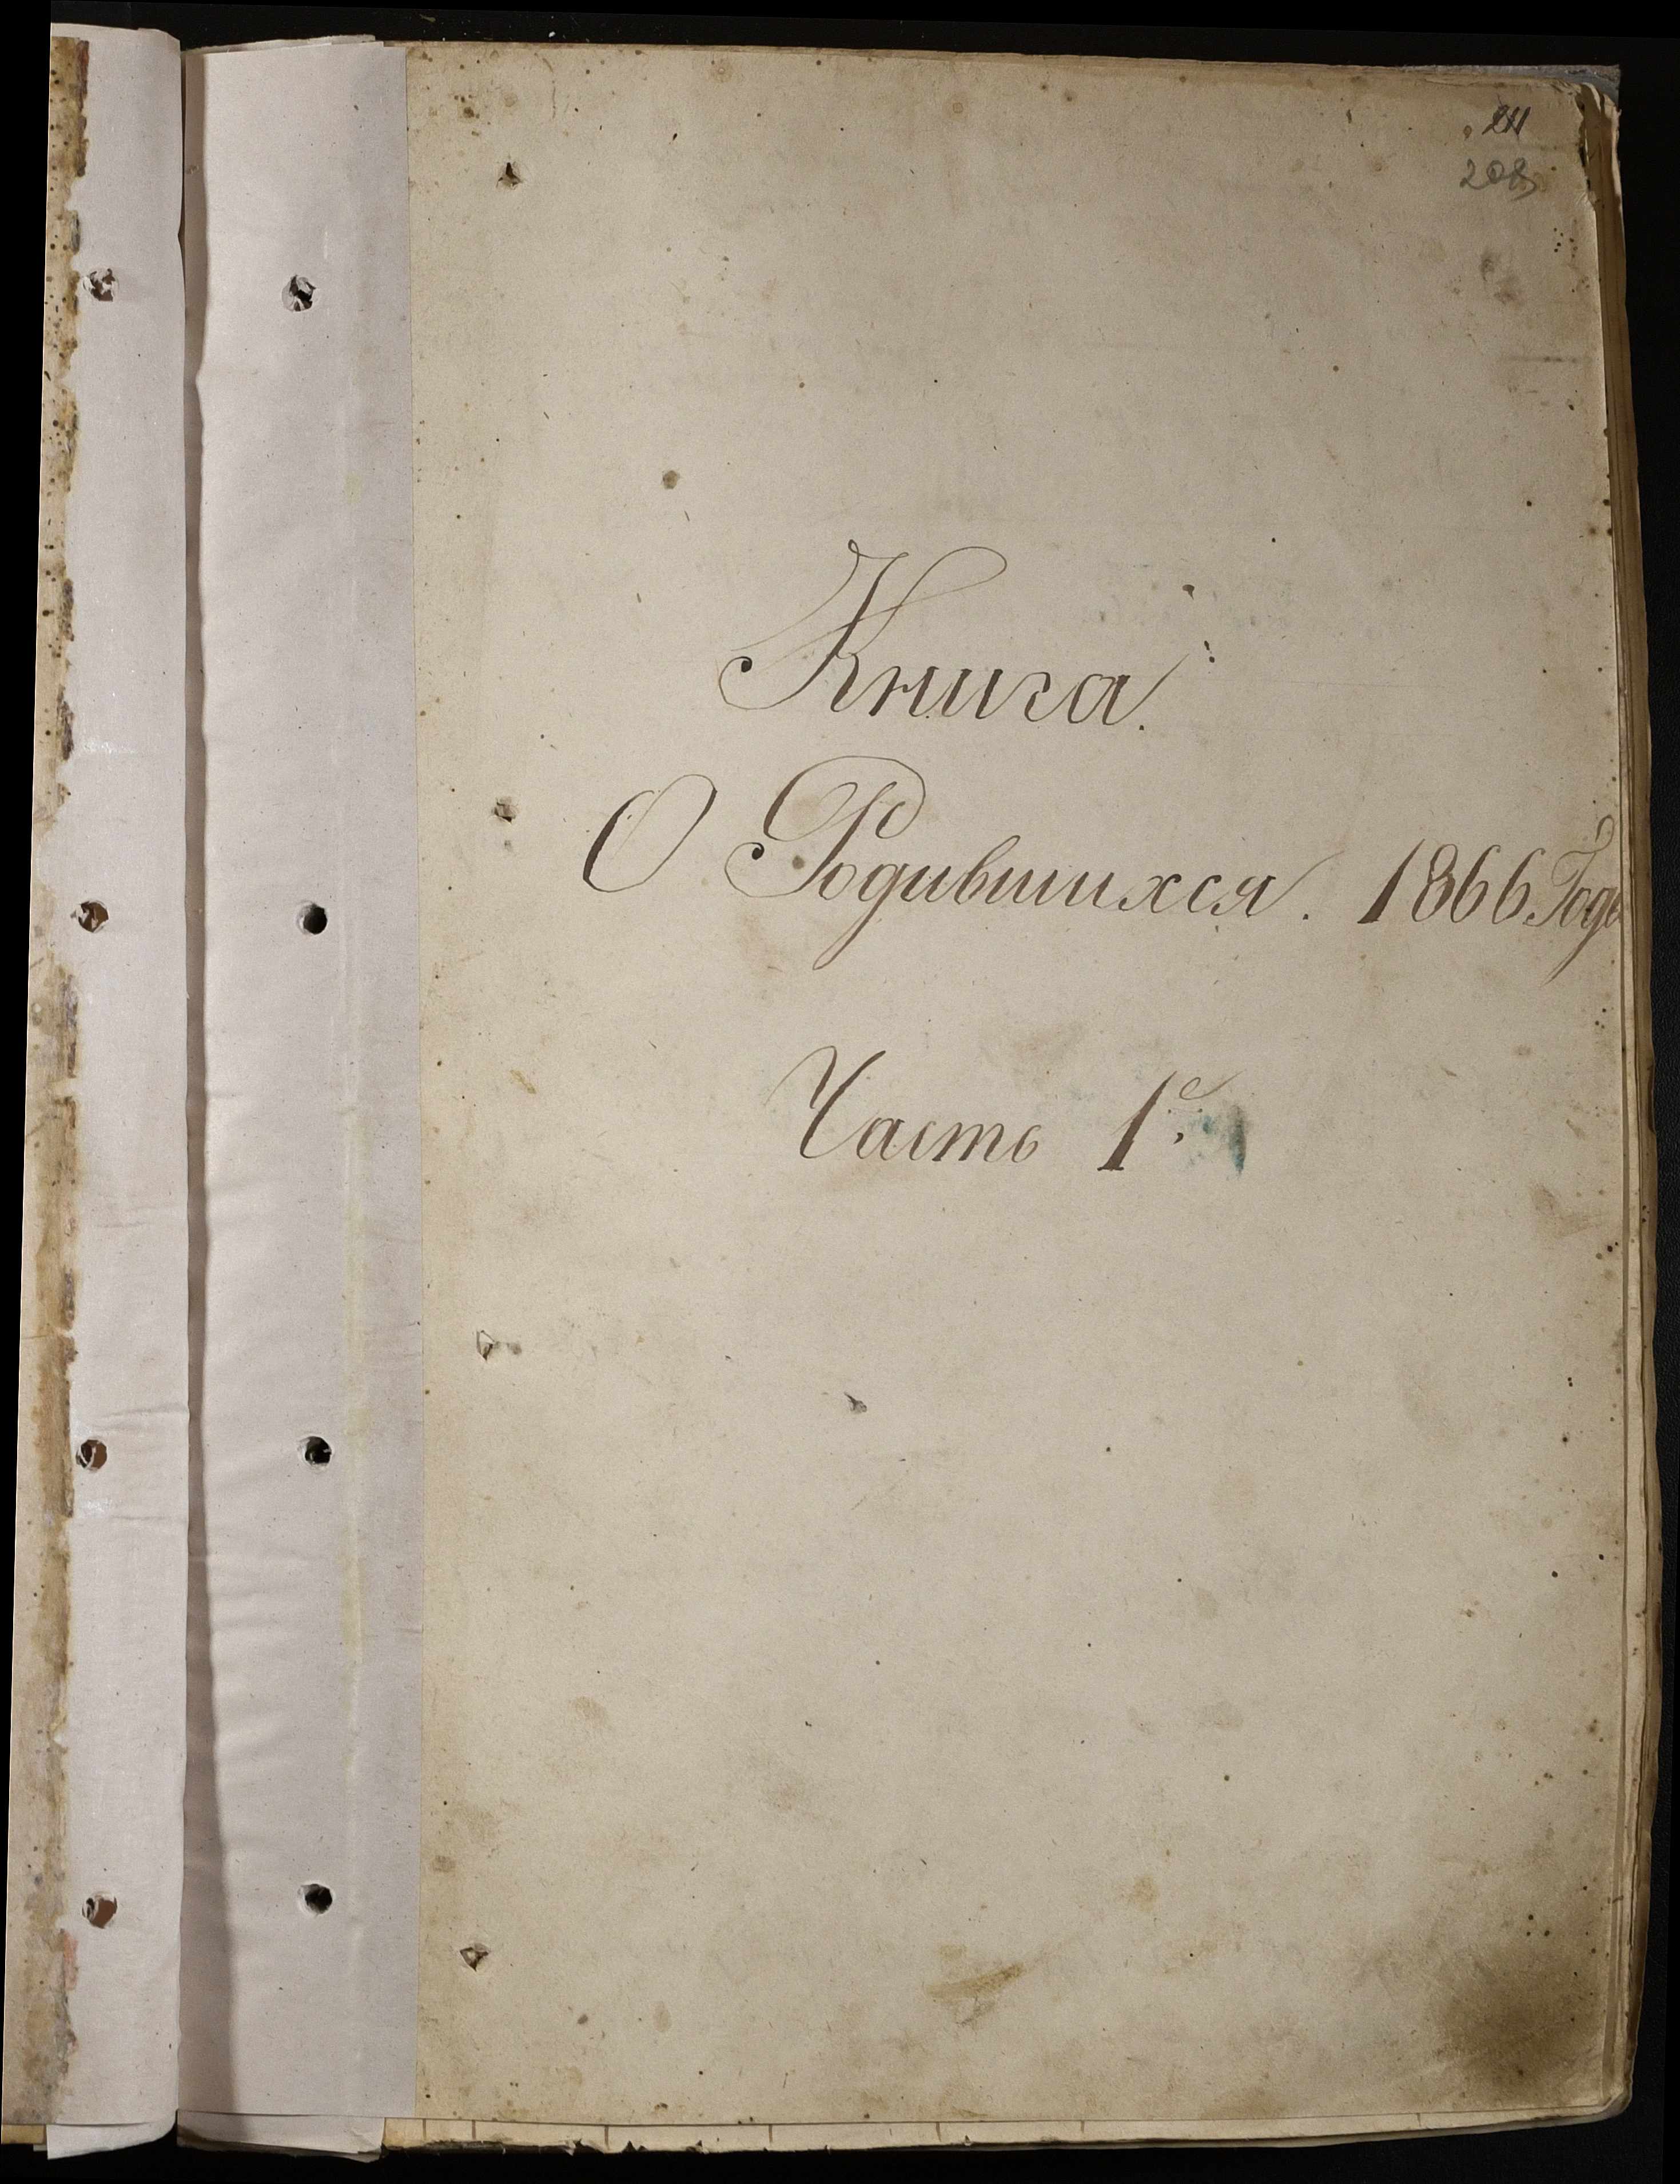 208
Книга.
О Родившихся. 1866 Года
Часть 1ᵃ.